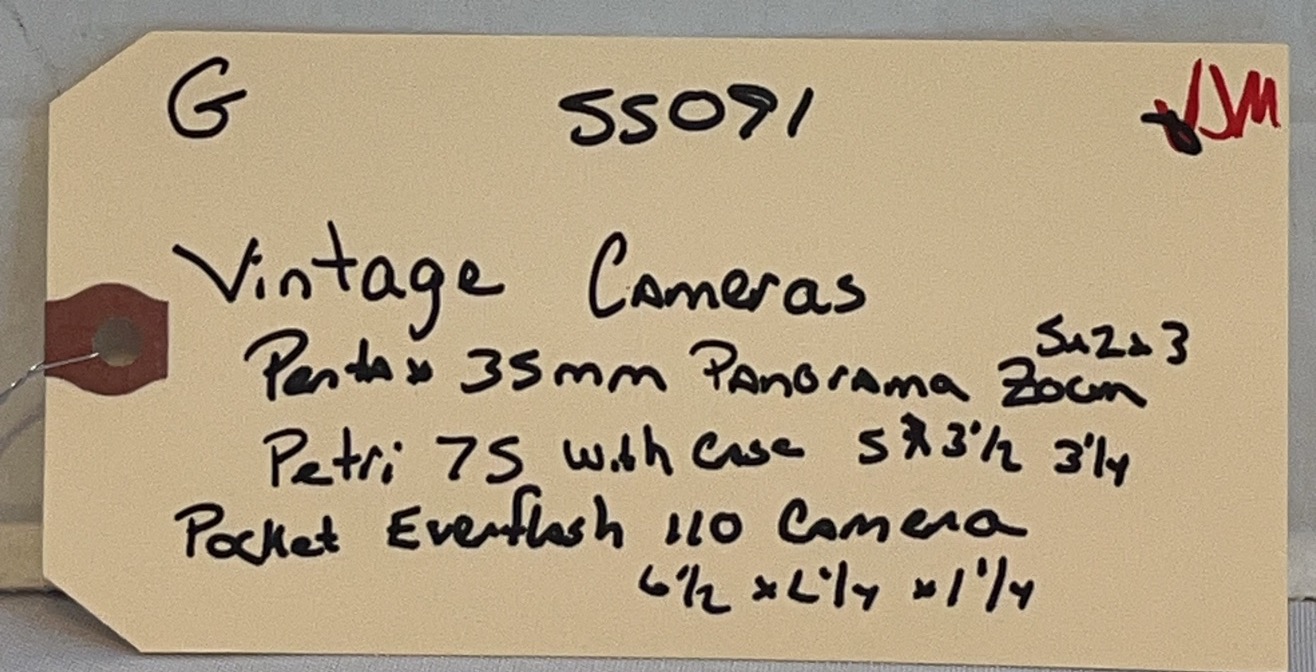 G 55091 JM
Vintage Cameras
5x2x3
Pentax 35mm Panorama Zoom
Petri 7S with Case 5x3 1/2 3 1/4
Pocket Everflash 110 Camera
6 1/2 x 2 1/4 x 1 1/4